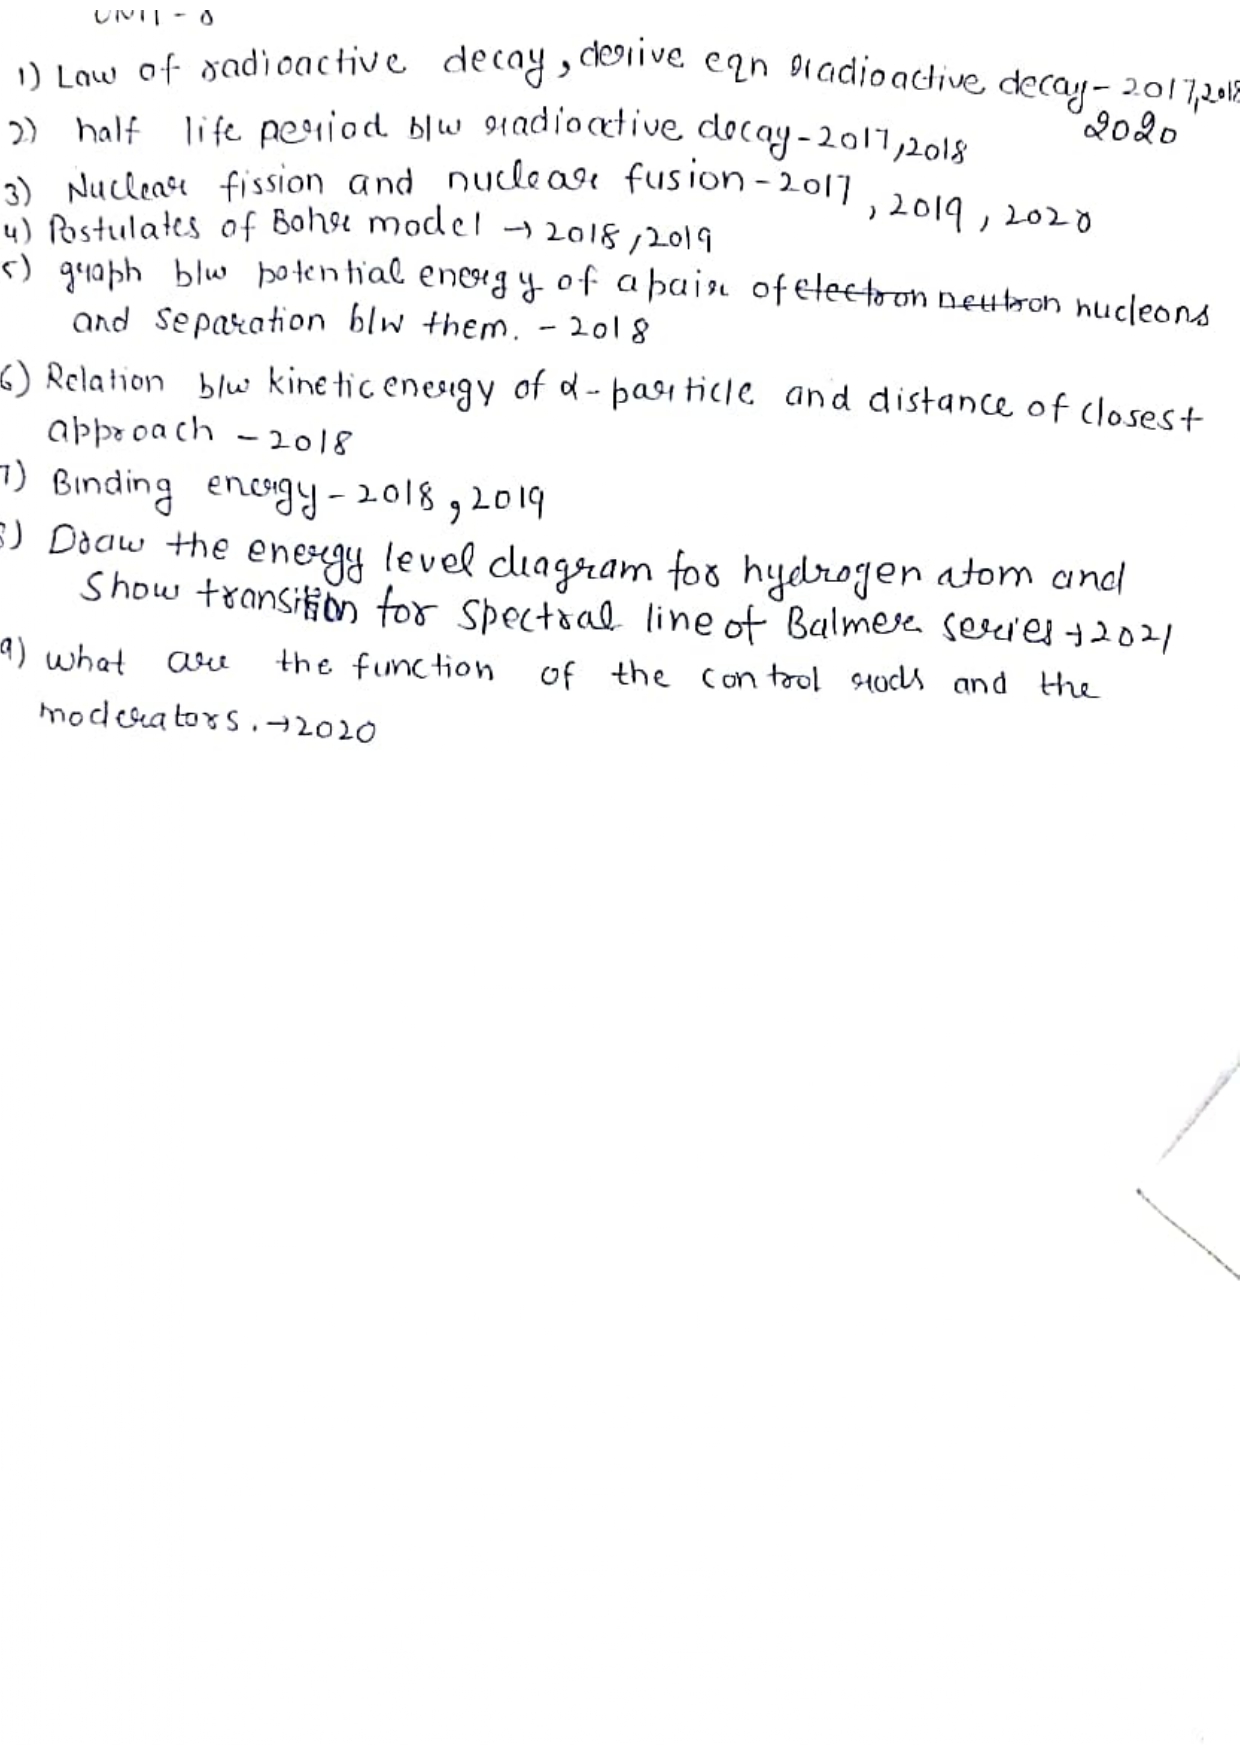 UNIT - 8
1) Law of radioactive decay, derive eqn radioactive decay - 2017,2018
2020
2) half life period b/w radioactive decay - 2017,2018
3) Nuclear fission and nuclear fusion - 2017, 2019, 2020
4) Postulates of Bohr model → 2018,2019
5) graph b/w potential energy of a pair of electron neutron nucleons
and separation b/w them. - 2018
6) Relation b/w kinetic energy of α-particle and distance of closest
approach - 2018
7) Binding energy - 2018, 2019
8) Draw the energy level diagram for hydrogen atom and
Show transition for spectral line of Balmer series → 2021
9) what are the function of the control rods and the
moderators. → 2020